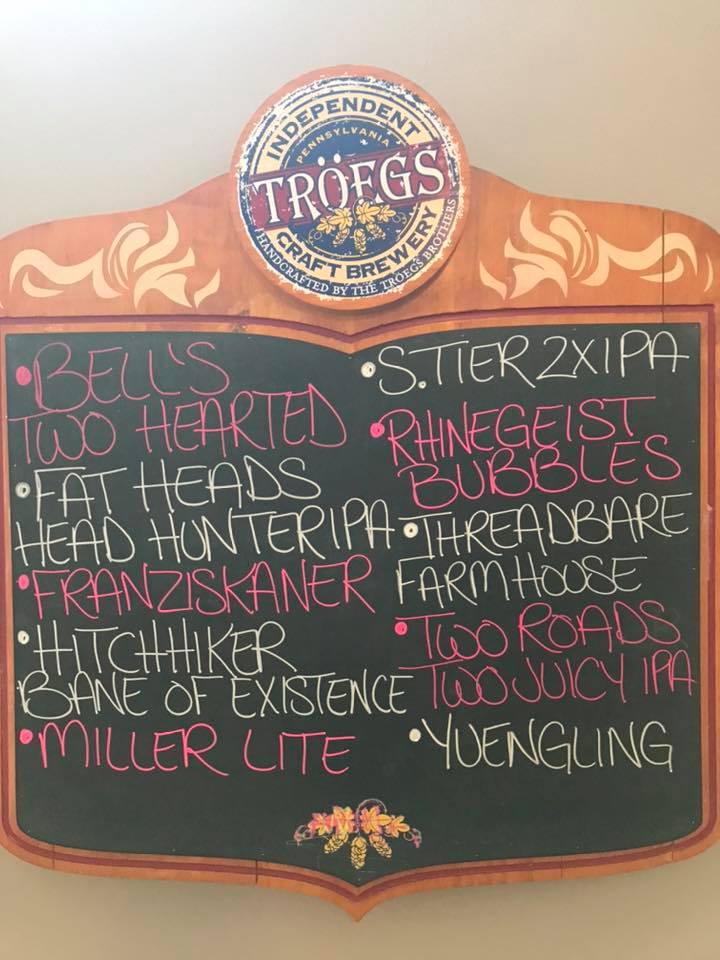 INDEPENDENT
PENNSYLVANIA
TRÖEGS
CRAFT BREWERY
HANDCRAFTED BY THE TRÖEGS BROTHERS
•BELL'S
TWO HEARTED
•FAT HEADS
HEAD HUNTER IPA
•FRANZISKANER
•HITCHHIKER
BANE OF EXISTENCE
•MILLER LITE
•S.TIER 2XIPA
•RHINEGEIST
BUBBLES
•THREADBARE
FARMHOUSE
•TWO ROADS
TWO JUICY IPA
•YUENGLING